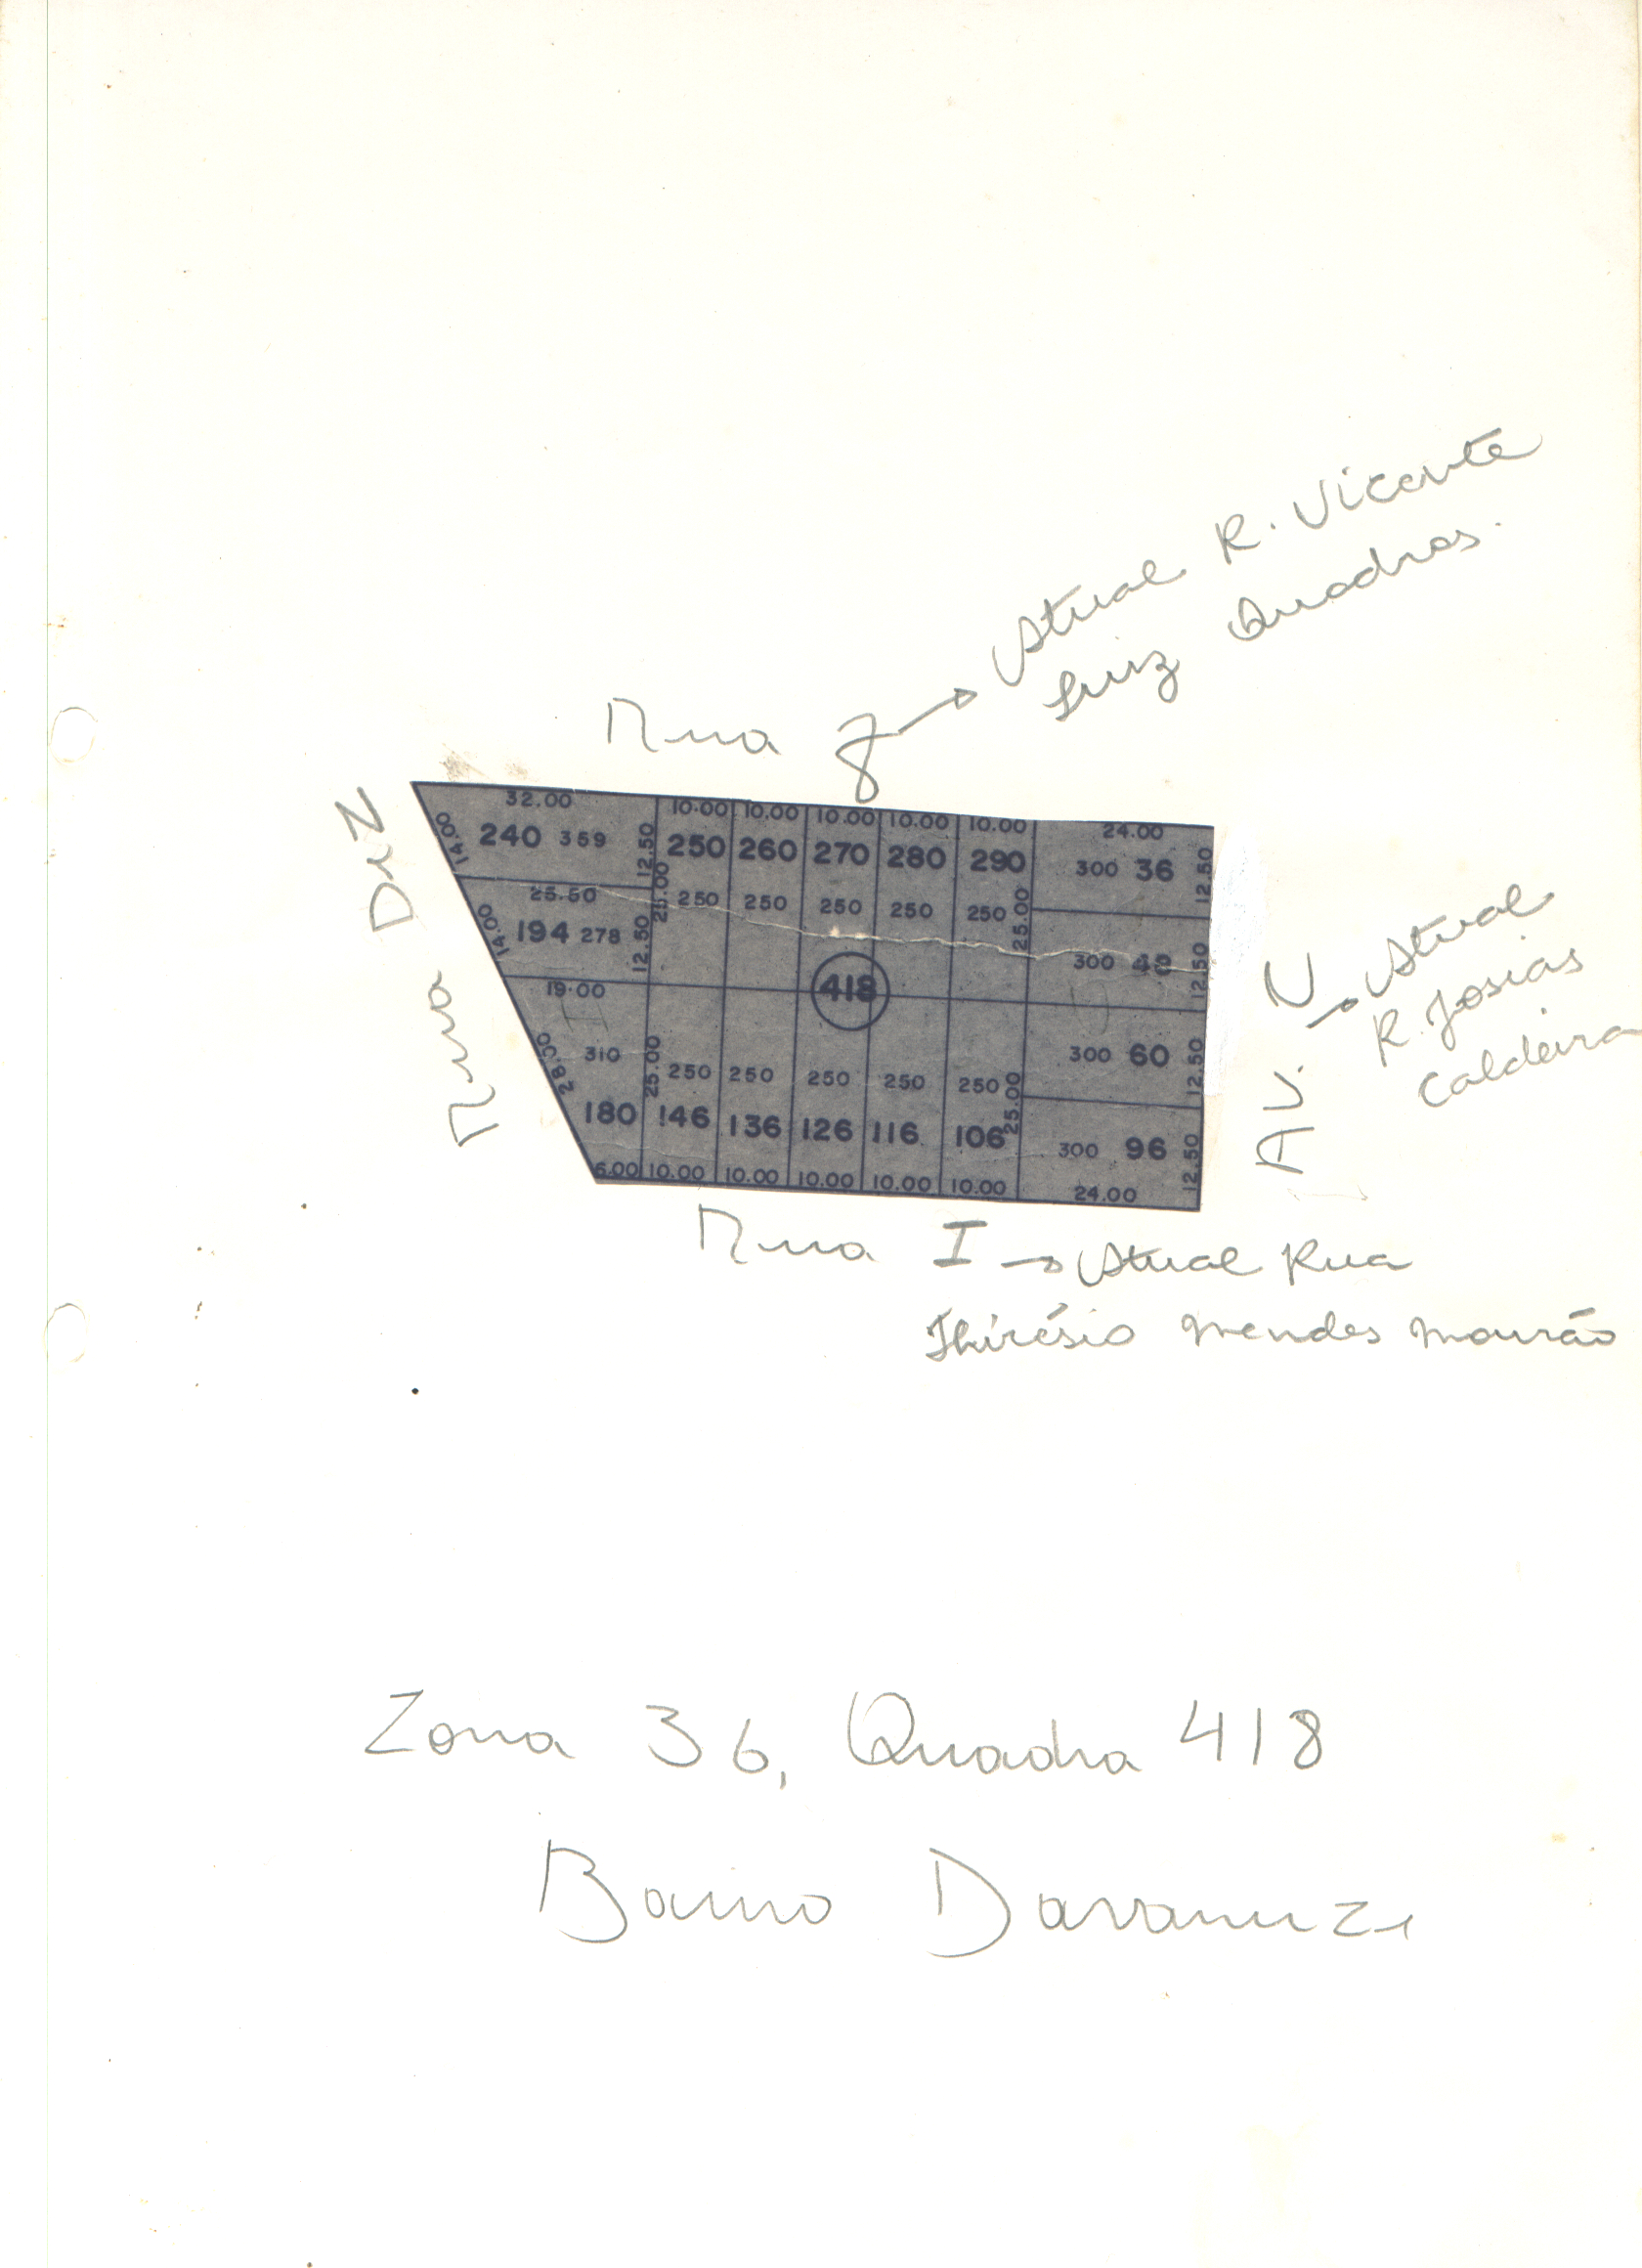 Atual R. Vicente
Luiz Quadros.
Rua J
Rua Dez
32.00
10.00 10.00 10.00 10.00 10.00
24.00
14.00
240 359
12.50
250 260 270 280 290
300 36
12.50
25.50
25.00
250 250 250 250 250
25.00
14.00
194 278
12.50
300
12.50
418
19.00
28.50
310
25.00
250 250 250 250 250
25.00
300 60
12.50
180 146 136 126 116 106
300 96
12.50
6.00 10.00 10.00 10.00 10.00 10.00
24.00
AV. N Atual
R. Josias
Caldeira
Rua I Atual Rua
Thirésio Mendes Mourão
Zona 36, Quadra 418
Bairro